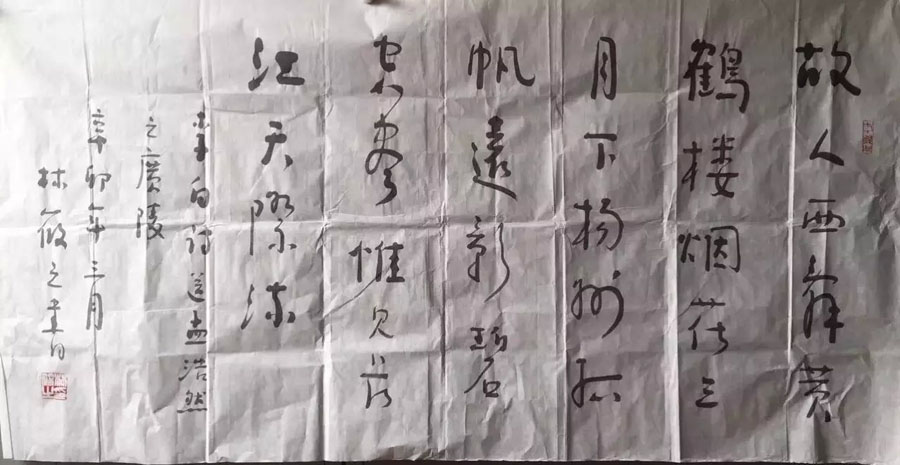 故人西辞黄
鶴楼烟花三
月下揚州孤
帆遠影碧
空尽惟見長
江天際流
李白詩送孟浩然
之廣陵
辛卯年三月
林筱之書